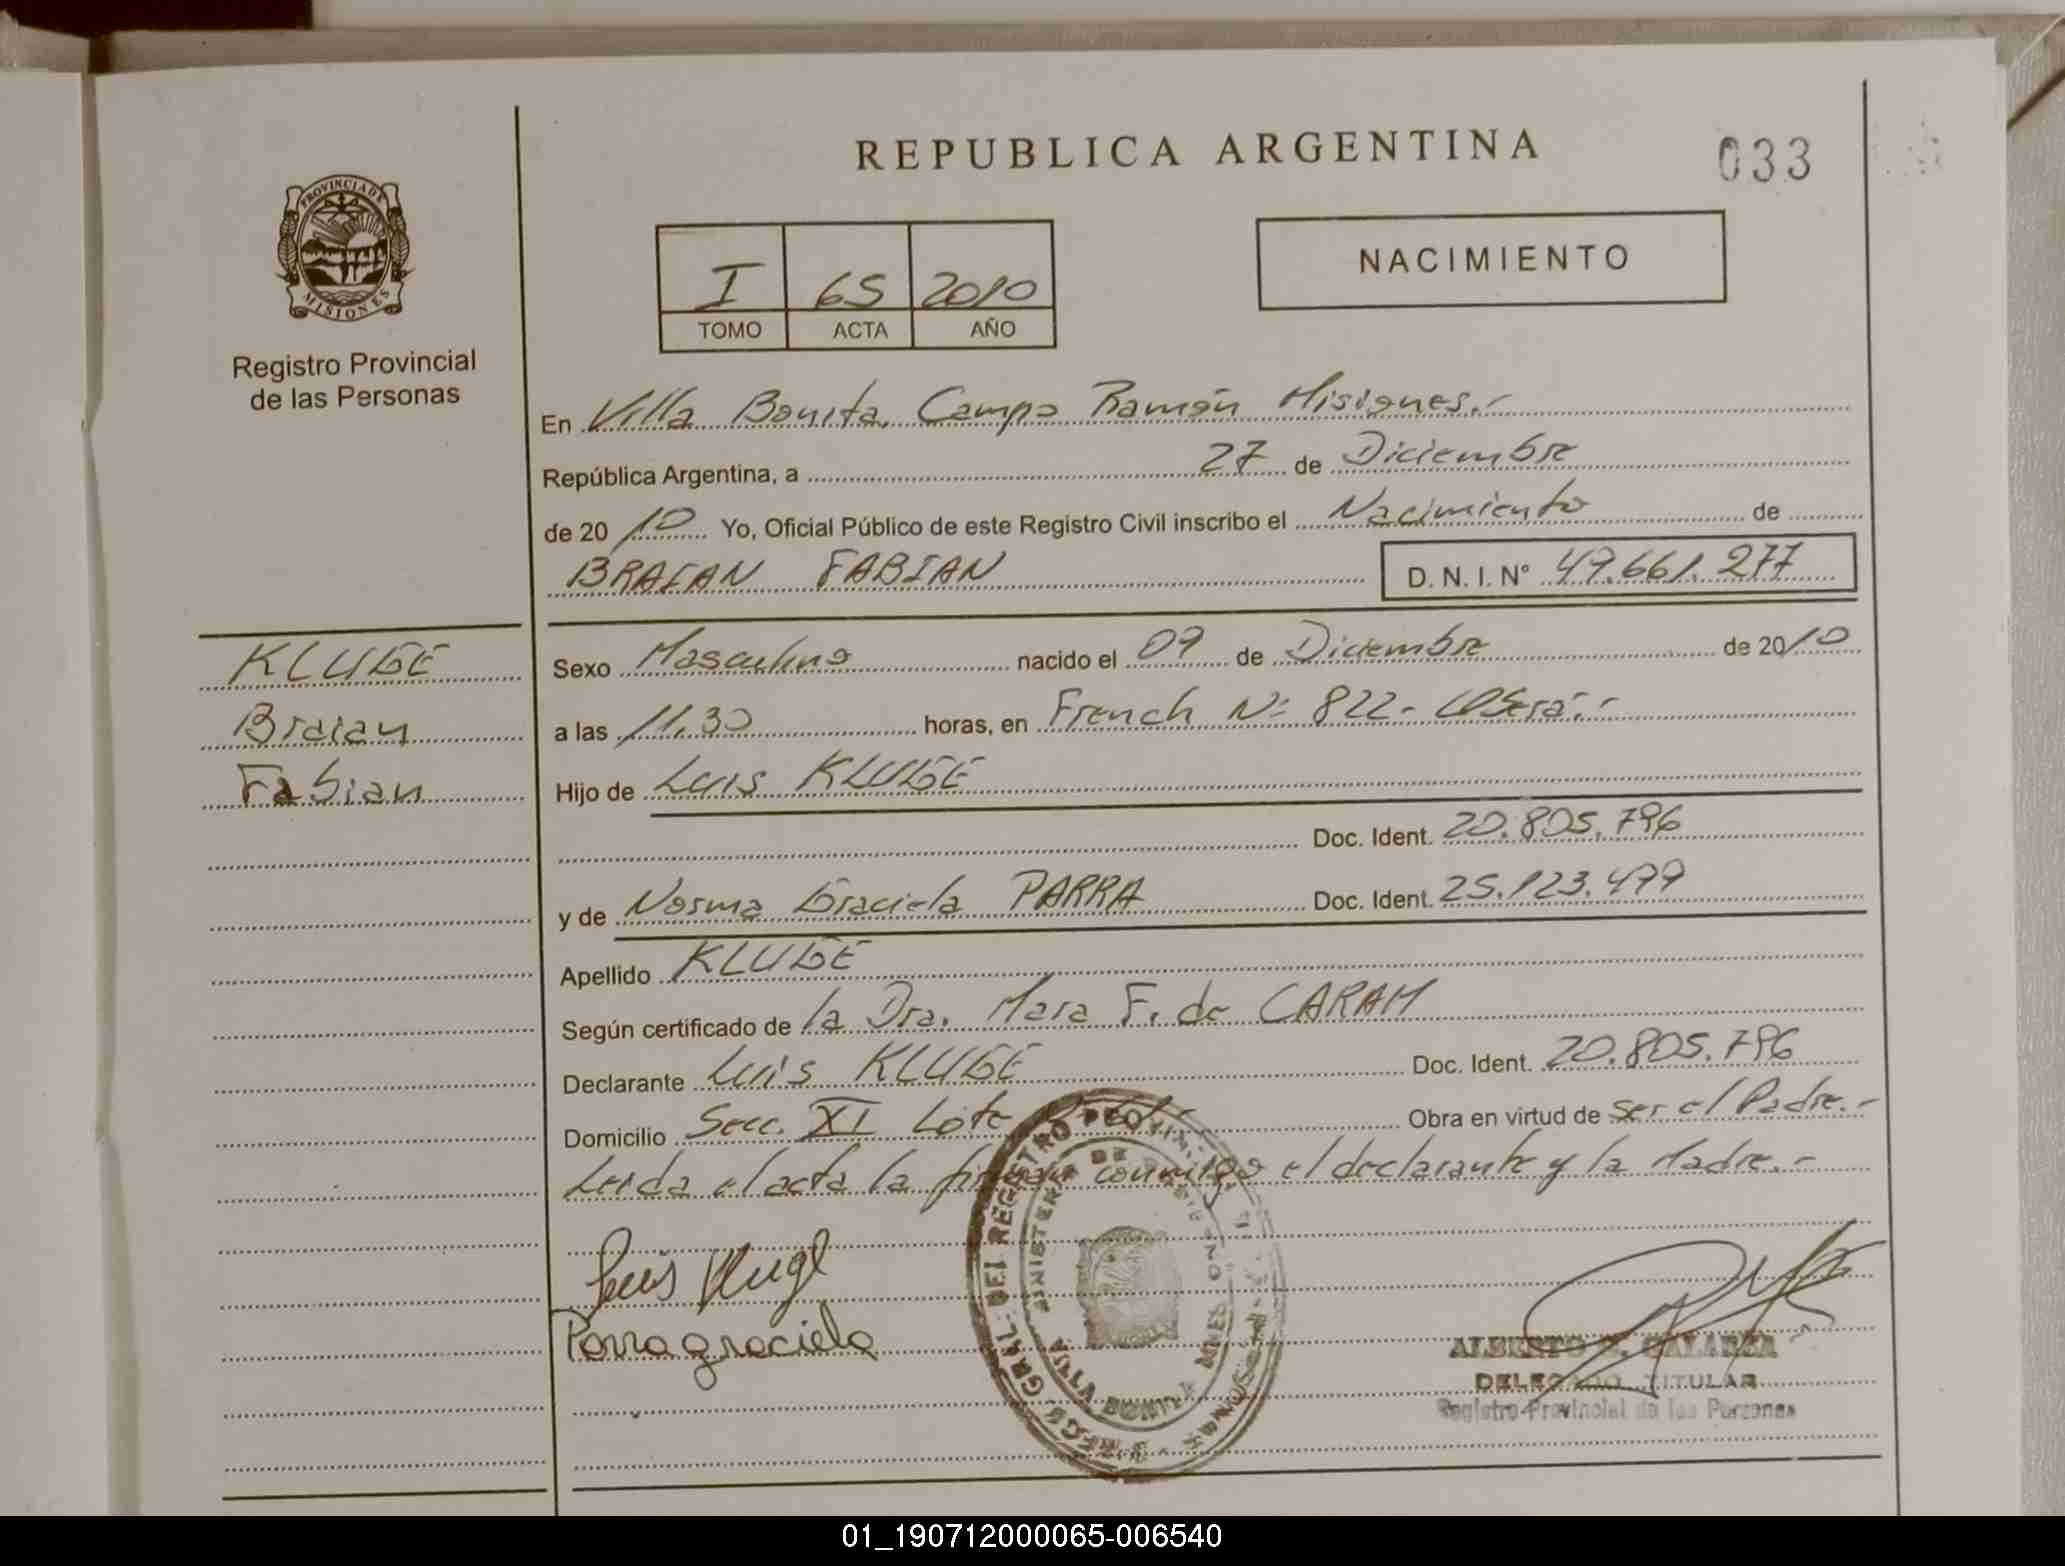 REPUBLICA ARGENTINA
033
PROVINCIA DE
MISIONES
Registro Provincial
de las Personas
I 65 2010
TOMO ACTA AÑO
NACIMIENTO
En Villa Bonita, Campo Ramón Misiones.-
República Argentina, a 27 de Diciembre
de 2010 Yo, Oficial Público de este Registro Civil inscribo el Nacimiento de
BRAIAN FABIAN D. N. I. N° 49.661.277
KLUGE
Braian
Fabian
Sexo Masculino nacido el 09 de Diciembre de 2010
a las 11.30 horas, en French N: 822- Oberá.-
Hijo de Luis KLUGE
Doc. Ident. 20.805.796
y de Norma Graciela PARRA Doc. Ident. 25.123.499
Apellido KLUGE
Según certificado de la Dra. Mara F. de CARAM
Declarante Luis KLUGE Doc. Ident. 20.805.796
Domicilio Secc. XI Lote Obra en virtud de ser el Padre.-
Leida el acta la firman conmigo el declarante y la Madre.-
Luis Klugl
Parra graciela
ALBERTO
DELEGADO TITULAR
Registro Provincial de las Personas
01_190712000065-006540